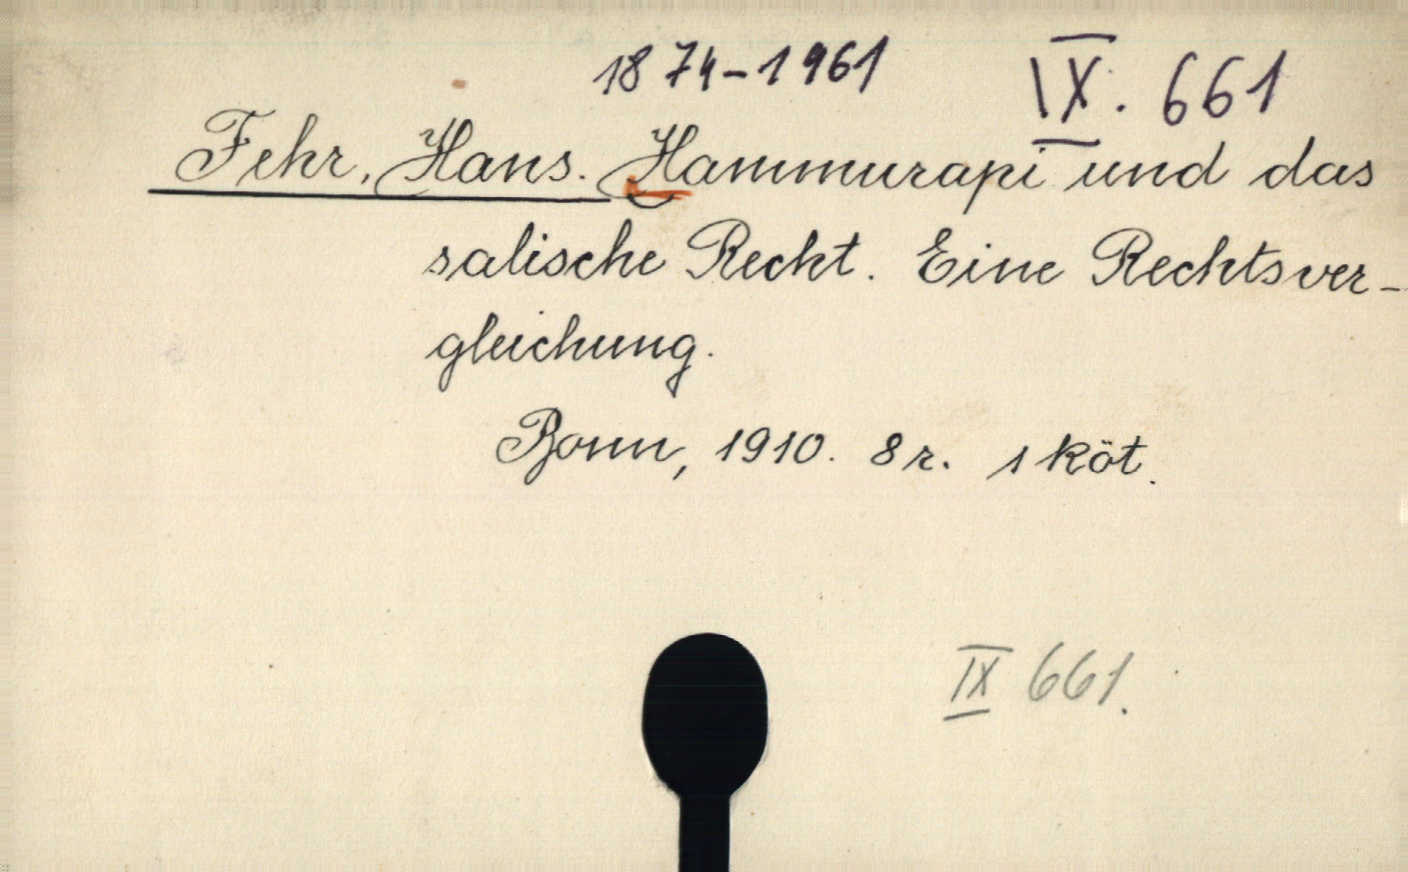 1874-1961 IX. 661
Fehr, Hans. Hammurapi und das
salische Recht. Eine Rechtsver-
gleichung.
Bonn, 1910. 8r. 1 köt.
IX 661.